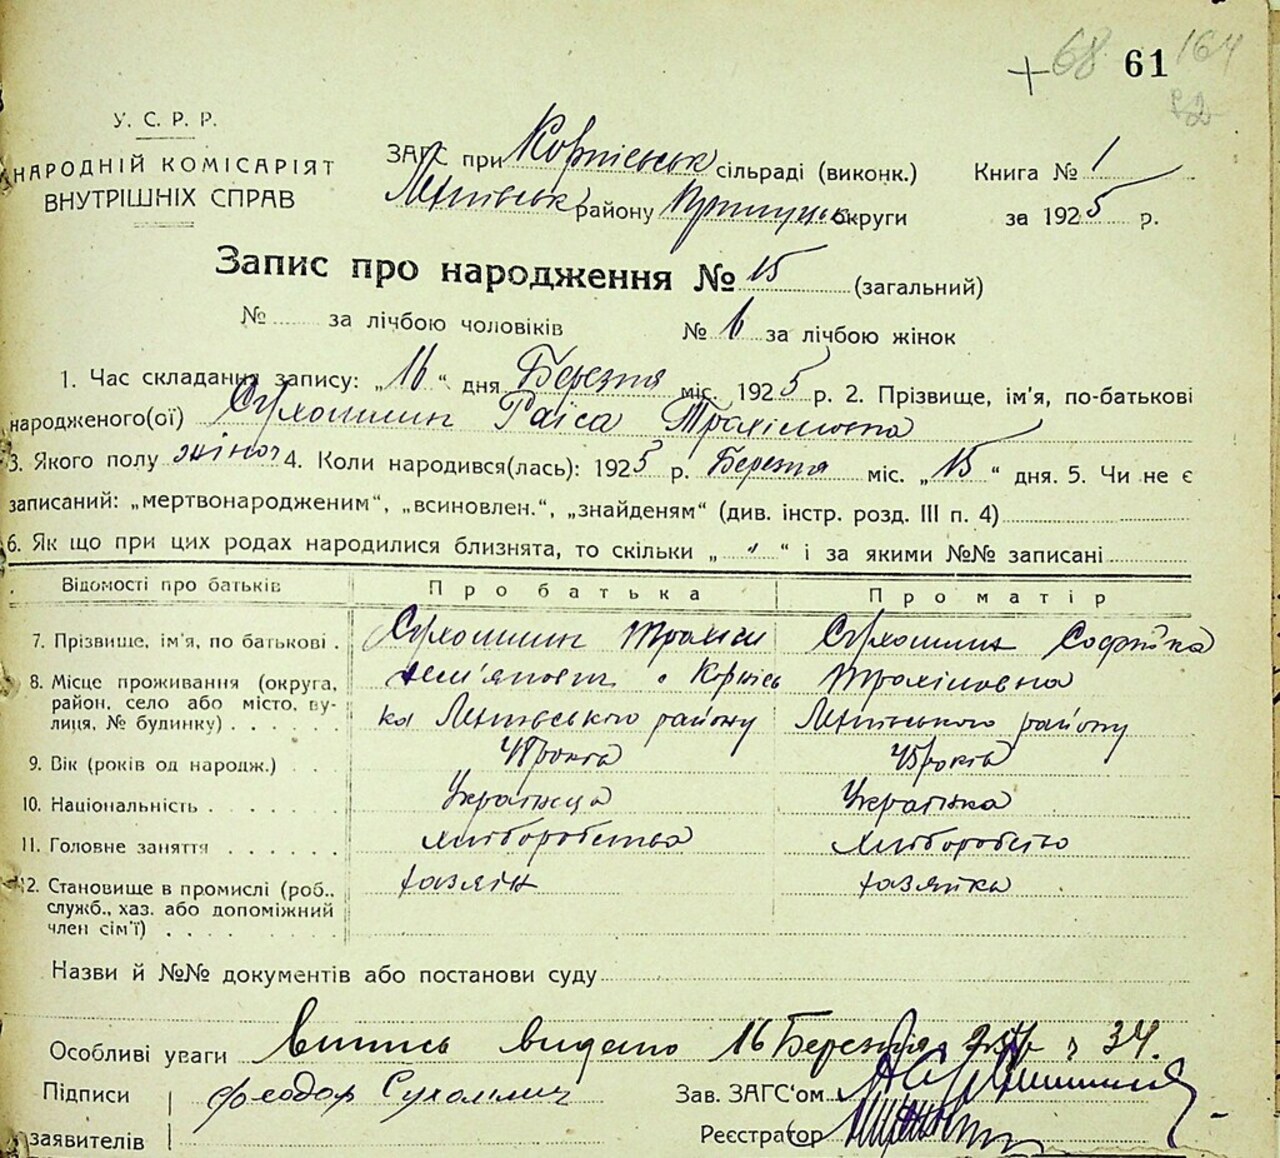 68 61 164
У. С. Р. Р.
НАРОДНІЙ КОМІСАРІЯТ
ВНУТРІШНІХ СПРАВ
ЗАГС при сільраді (виконк.) Книга № 1
району округи за 1925 р.
Запис про народження № 15 (загальний)
№ за лічбою чоловіків № 6 за лічбою жінок
1. Час складання запису: „16“ дня Березня міс. 1925 р. 2. Прізвище, ім'я, по-батькові
народженого(ої) Сухомлин Раїса Трохімовна
3. Якого полу жіноч 4. Коли народився(лась): 1925 р. Березня міс. „15“ дня. 5. Чи не є
записаний: „мертвонародженим“, „всиновлен.“, „знайденям“ (див. інстр. розд. III п. 4)
6. Як що при цих родах народилися близнята, то скільки „ “ і за якими №№ записані
Відомості про батьків Про батька Про матір
7. Прізвище, ім'я, по батькові . Сухомлин Трохім Сухомлин Софійка
8. Місце проживання (округа, Трохімовна
район, село або місто, ву-
лиця, № будинку) . . . . . . району району
9. Вік (років од народж.) . . . років років
10. Національність . . . . . . Українец Українка
11. Головне заняття . . . . . . хліборобство хліборобство
12. Становище в промислі (роб., хазяїн хазяйка
служб., хаз. або допоміжний
член сім'ї) . . . . . .
Назви й №№ документів або постанови суду
Особливі уваги Випись видано 16 Березня 34.
Підписи Феодор Сухомлин Зав. ЗАГС'ом
заявителів Реєстратор